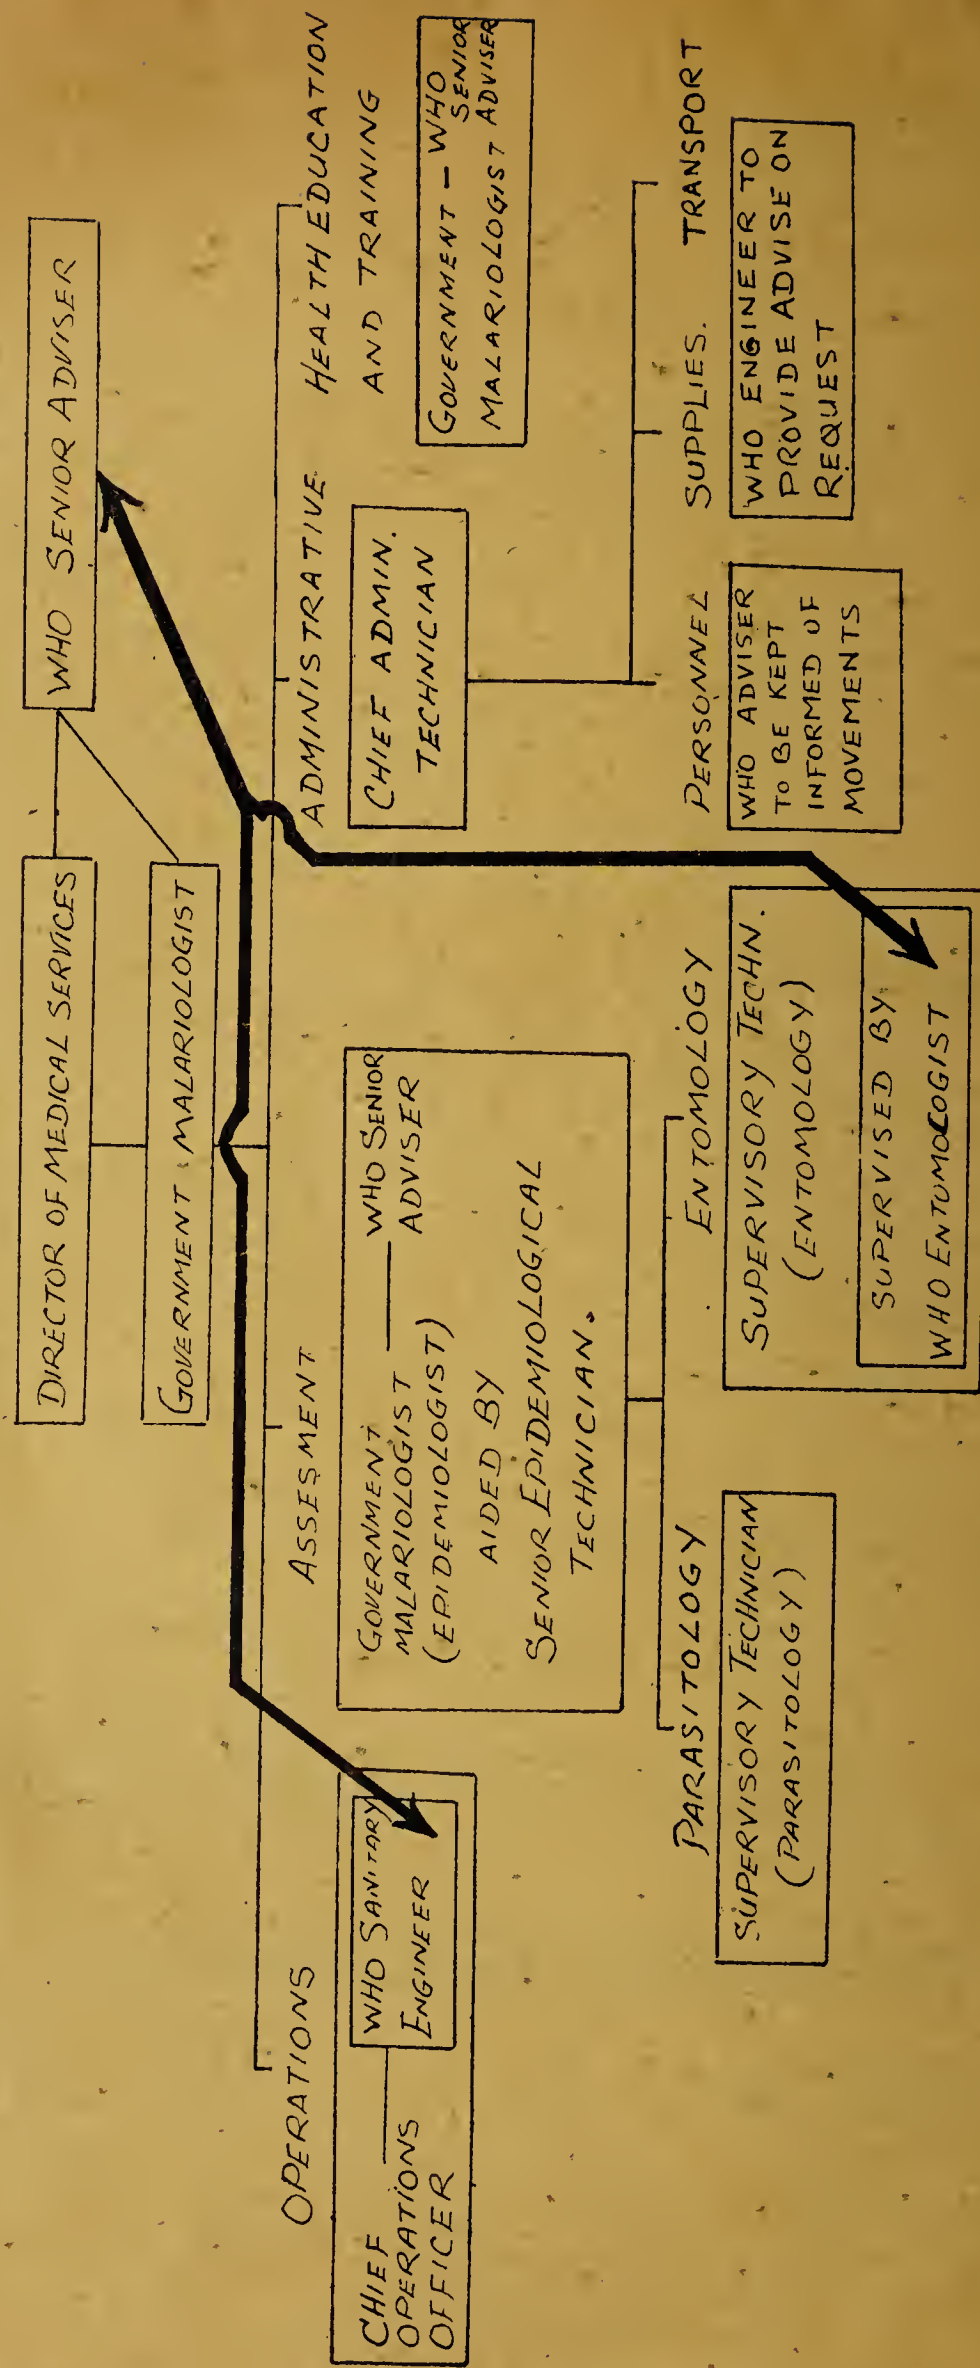 DIRECTOR OF MEDICAL SERVICES
WHO SENIOR ADVISER
GOVERNMENT MALARIOLOGIST
OPERATIONS
CHIEF
OPERATIONS
OFFICER
WHO SANITARY
ENGINEER
ASSESMENT
GOVERNMENT
MALARIOLOGIST
(EPIDEMIOLOGIST)
WHO SENIOR
ADVISER
AIDED BY
SENIOR EPIDEMIOLOGICAL
TECHNICIAN.
PARASITOLOGY
SUPERVISORY TECHNICIAN
(PARASITOLOGY)
ENTOMOLOGY
SUPERVISORY TECHN.
(ENTOMOLOGY)
SUPERVISED BY
WHO ENTOMOLOGIST
ADMINISTRATIVE
CHIEF ADMIN.
TECHNICIAN
PERSONNEL
WHO ADVISER
TO BE KEPT
INFORMED OF
MOVEMENTS
SUPPLIES.
TRANSPORT
WHO ENGINEER TO
PROVIDE ADVISE ON
REQUEST
HEALTH EDUCATION
AND TRAINING
GOVERNMENT — WHO
SENIOR
MALARIOLOGIST ADVISER